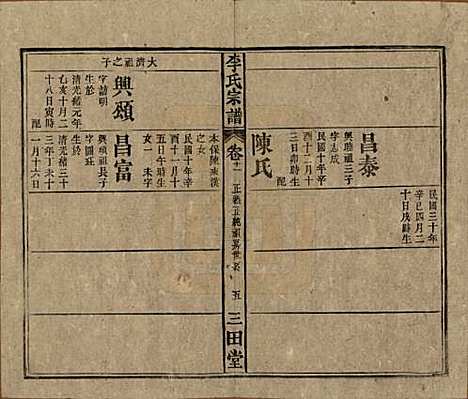 民國三十年
辛巳四月二
十日戌時生
昌泰
興聯祖三子
字志成
民國十年辛
酉十二月十
三日卯時生
配
陳氏
李氏宗譜
卷十一
五
三田堂
本保陳來漢
之女
民國十年辛
酉十一月十
五日午時生
女一 未字
昌富
興頌祖長子
字國珏
生於
清光緒三十
三年丁未十
一月十六日
配
大濟祖之子
興頌
字請明
生於
清光緒元年
乙亥十月二
十八日寅時
配